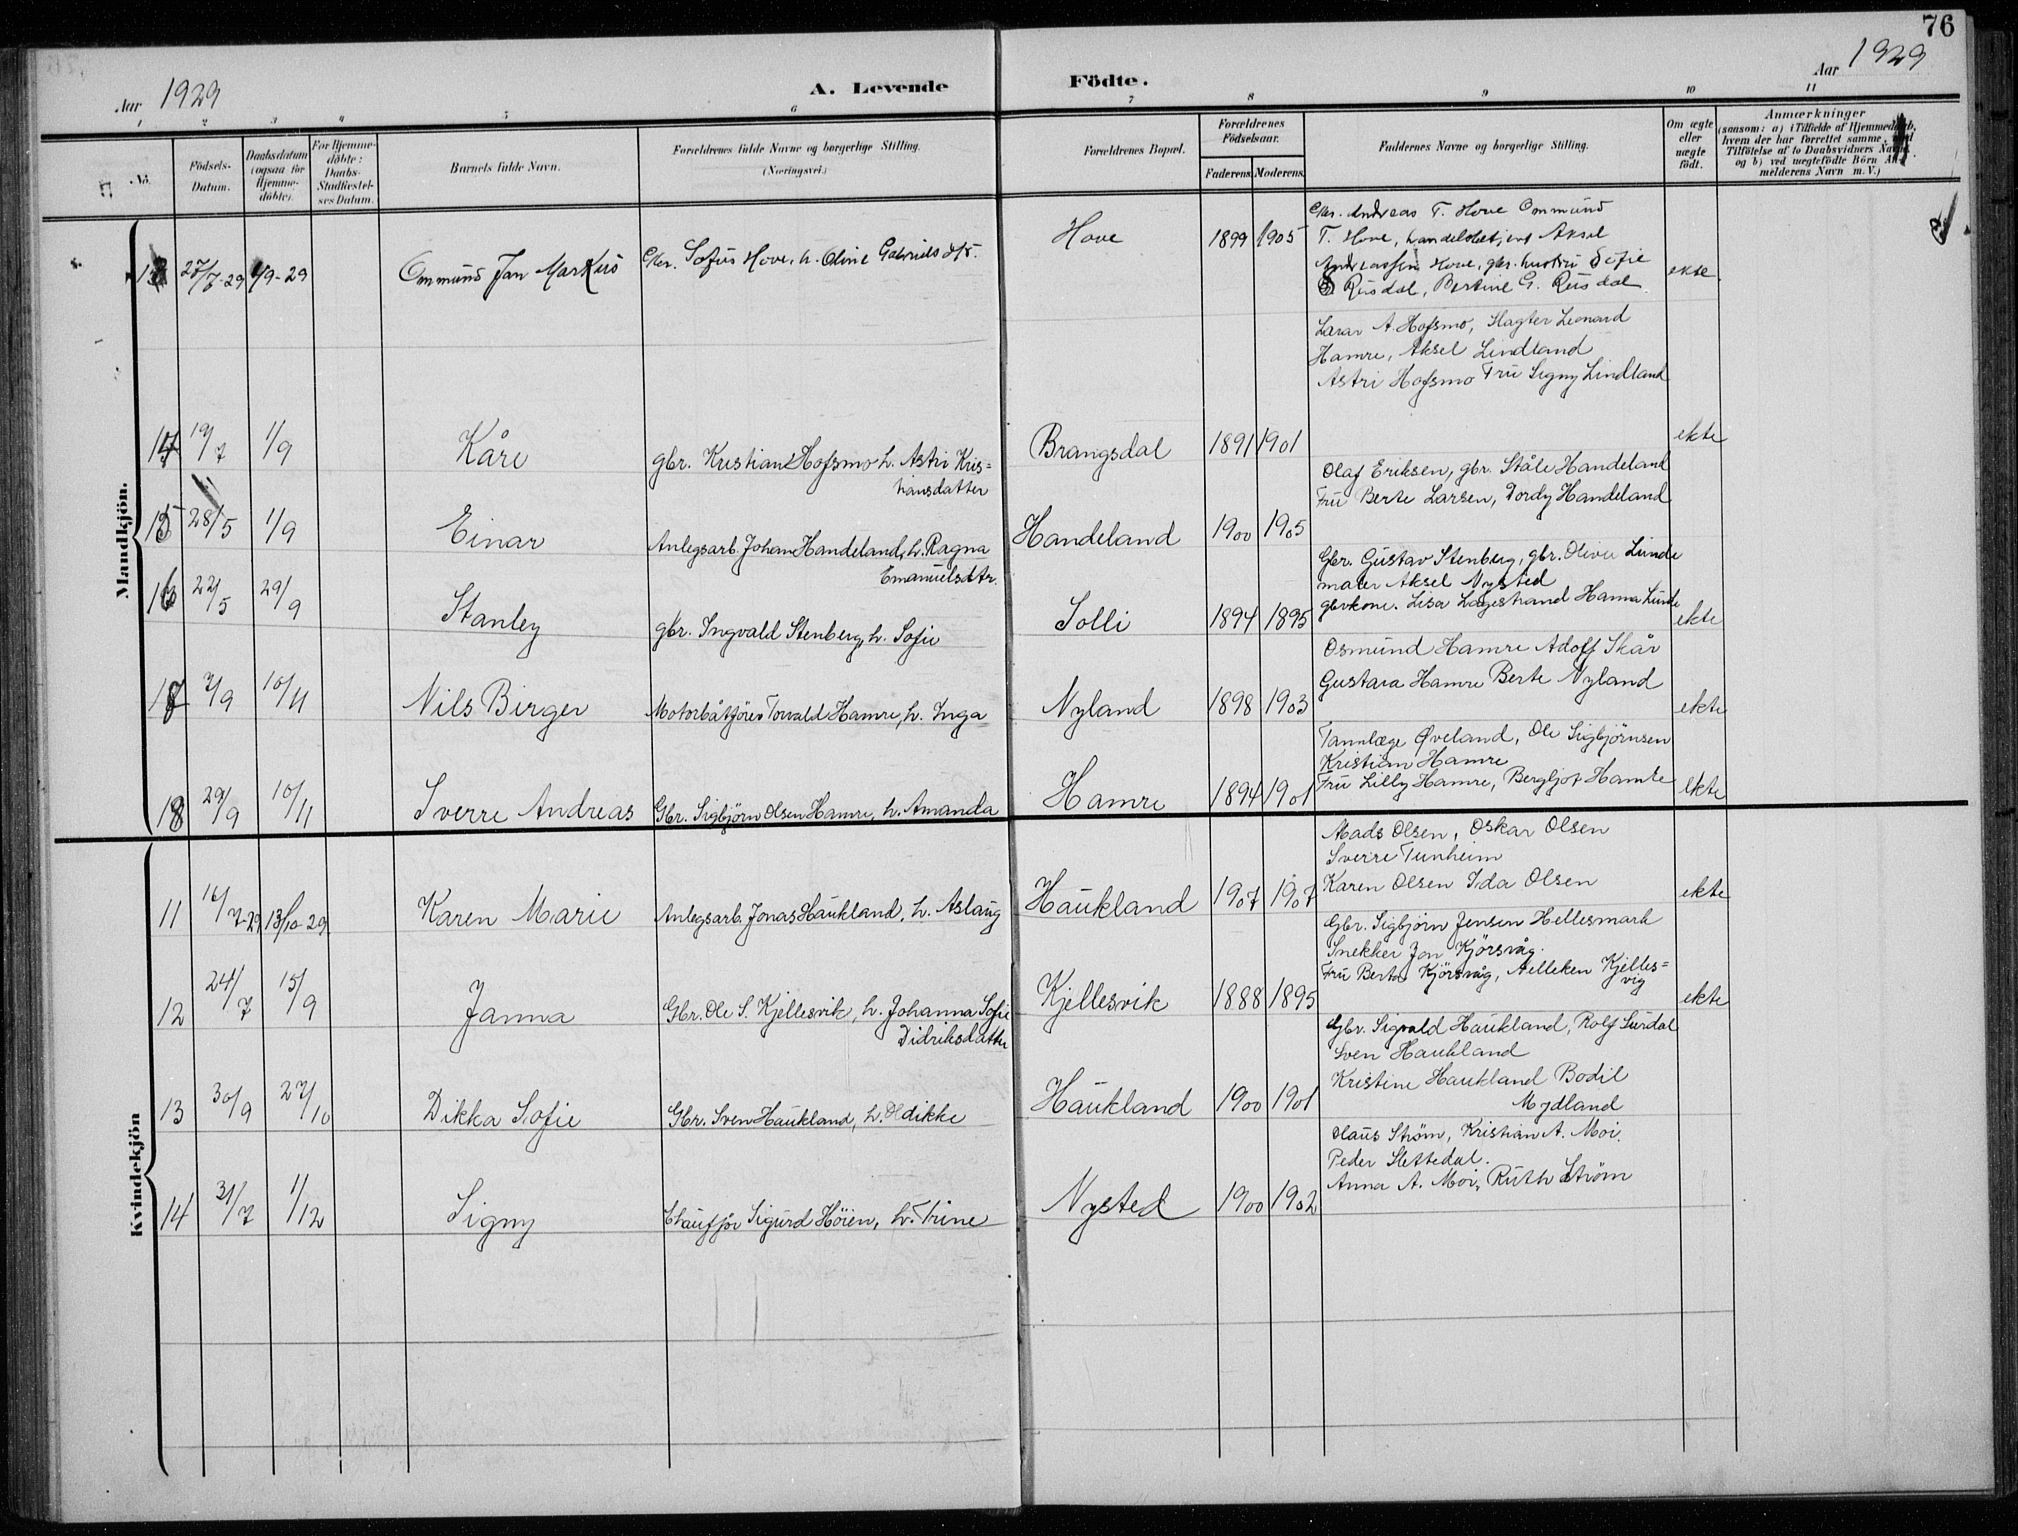 76
Aar 1929
A. Levende Födte.
Aar 1929
1 2 3 4 5 6 7 8 9 10 11
No.
Födsels-Datum.
Daabsdatum (ogsaa for Hjemme-döbte).
For Hjemme-döbte: Daabs-Stadfæstel-ses Datum.
Barnets fulde Navn.
Forældrenes fulde Navne og borgerlige Stilling.
(Næringsvei.)
Forældrenes Bopæl.
Forældrenes Födselsaar.
Faderens. Moderens.
Faddernes Navne og borgerlige Stilling.
Om ægte eller uægte födt.
Anmærkninger
(saasom: a) i Tilfælde af Hjemmedaab, hvem der har forrettet samme, med Tilföielse af to Daabsvidners Navne, og b) ved uægtefödte Börn An-melderens Navn m. V.)
Mandkjön.
13 27/7-29 1/9-29 Ommund Jan Markus Gbr. Sofus Hove, h. Oline Gabrielsdtr. Hove 1899 1905
Gbr. Andreas T. Hove Ommund
T. Hove, handelsbetjent Aksel
Andreassen Hove, gbr. hustru Sofie
Rusdal, Bertine G. Rusdal ekte.
14 19/7 1/9 Kåre gbr. Kristian Hofsmo h. Astri Kris=
tiansdatter Brangsdal 1891 1901
Larar A. Hofsmo, Slagter Leonard
Hamre, Aksel Lindland
Astri Hofsmo Fru Signy Lindland
ekte
15 28/5 1/9 Einar Anlegsarb. Johan Handeland, h. Ragna
Emanuelsdtr. Handeland 1900 1905
Olaf Eriksen, gbr. Ståle Handeland
Fru Berte Larsen, Dordy Handeland
16 22/5 29/9 Stanley gbr. Ingvald Stenberg, h. Sofie Solli 1894 1895
Gbr. Gustav Stenberg, gbr. Oliver Lunde
maler Aksel Nysted
gbrkone. Lisa Lagestrand Hanna Lunde ekte
17 2/9 10/11 Nils Birger Motorbåtförer Torvald Hamre, h. Inga Nyland 1898 1903
Osmund Hamre Adolf Skår
Gustava Hamre Berte Nyland
ekte
18 29/9 10/11 Sverre Andreas Gbr. Sigbjörn Olsen Hamre, h. Amanda Hamre 1894 1901
Tannlæge Øveland, Ole Sigbjörnsen
Kristian Hamre
Fru Lilly Hamre, Bergljot Hamre ekte
Kvindekjön
11 16/7-29 13/10-29 Karen Marie Anlegsarb. Jonas Haukland, h. Aslaug Haukland 1907 1907
Mads Olsen, Oskar Olsen
Sverre Tunheim
Karen Olsen Ida Olsen ekte
12 24/7 15/9 Janna Gbr. Ole S. Kjellesvik, h. Johanna Sofie
Didriksdatter Kjellesvik 1888 1895
Gbr. Sigbjörn Jensen Hellesmark
Snekker Jon Kjörsvåg.
Fru Berta Kjörsvåg, Aelleken Kjelles=
vig
ekte
13 30/9 27/10 Dikka Sofie Gbr. Sven Haukland, h. Oldikke Haukland 1900 1901
Gbr. Sigvald Haukland, Rolf Surdal
Sven Haukland
Kristine Haukland Bodil
Mydland
14 31/7 1/12 Signy Chaufför Sigurd Höien, h. Trine Nysted 1900 1902
Olaus Strøm, Kristian A. Moi.
Peder Slettedal.
Anna A. Moi, Ruth Strøm